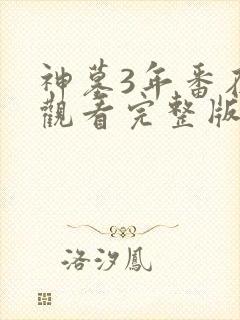 神墓3年番在
觀看完整版
洛汐鳳